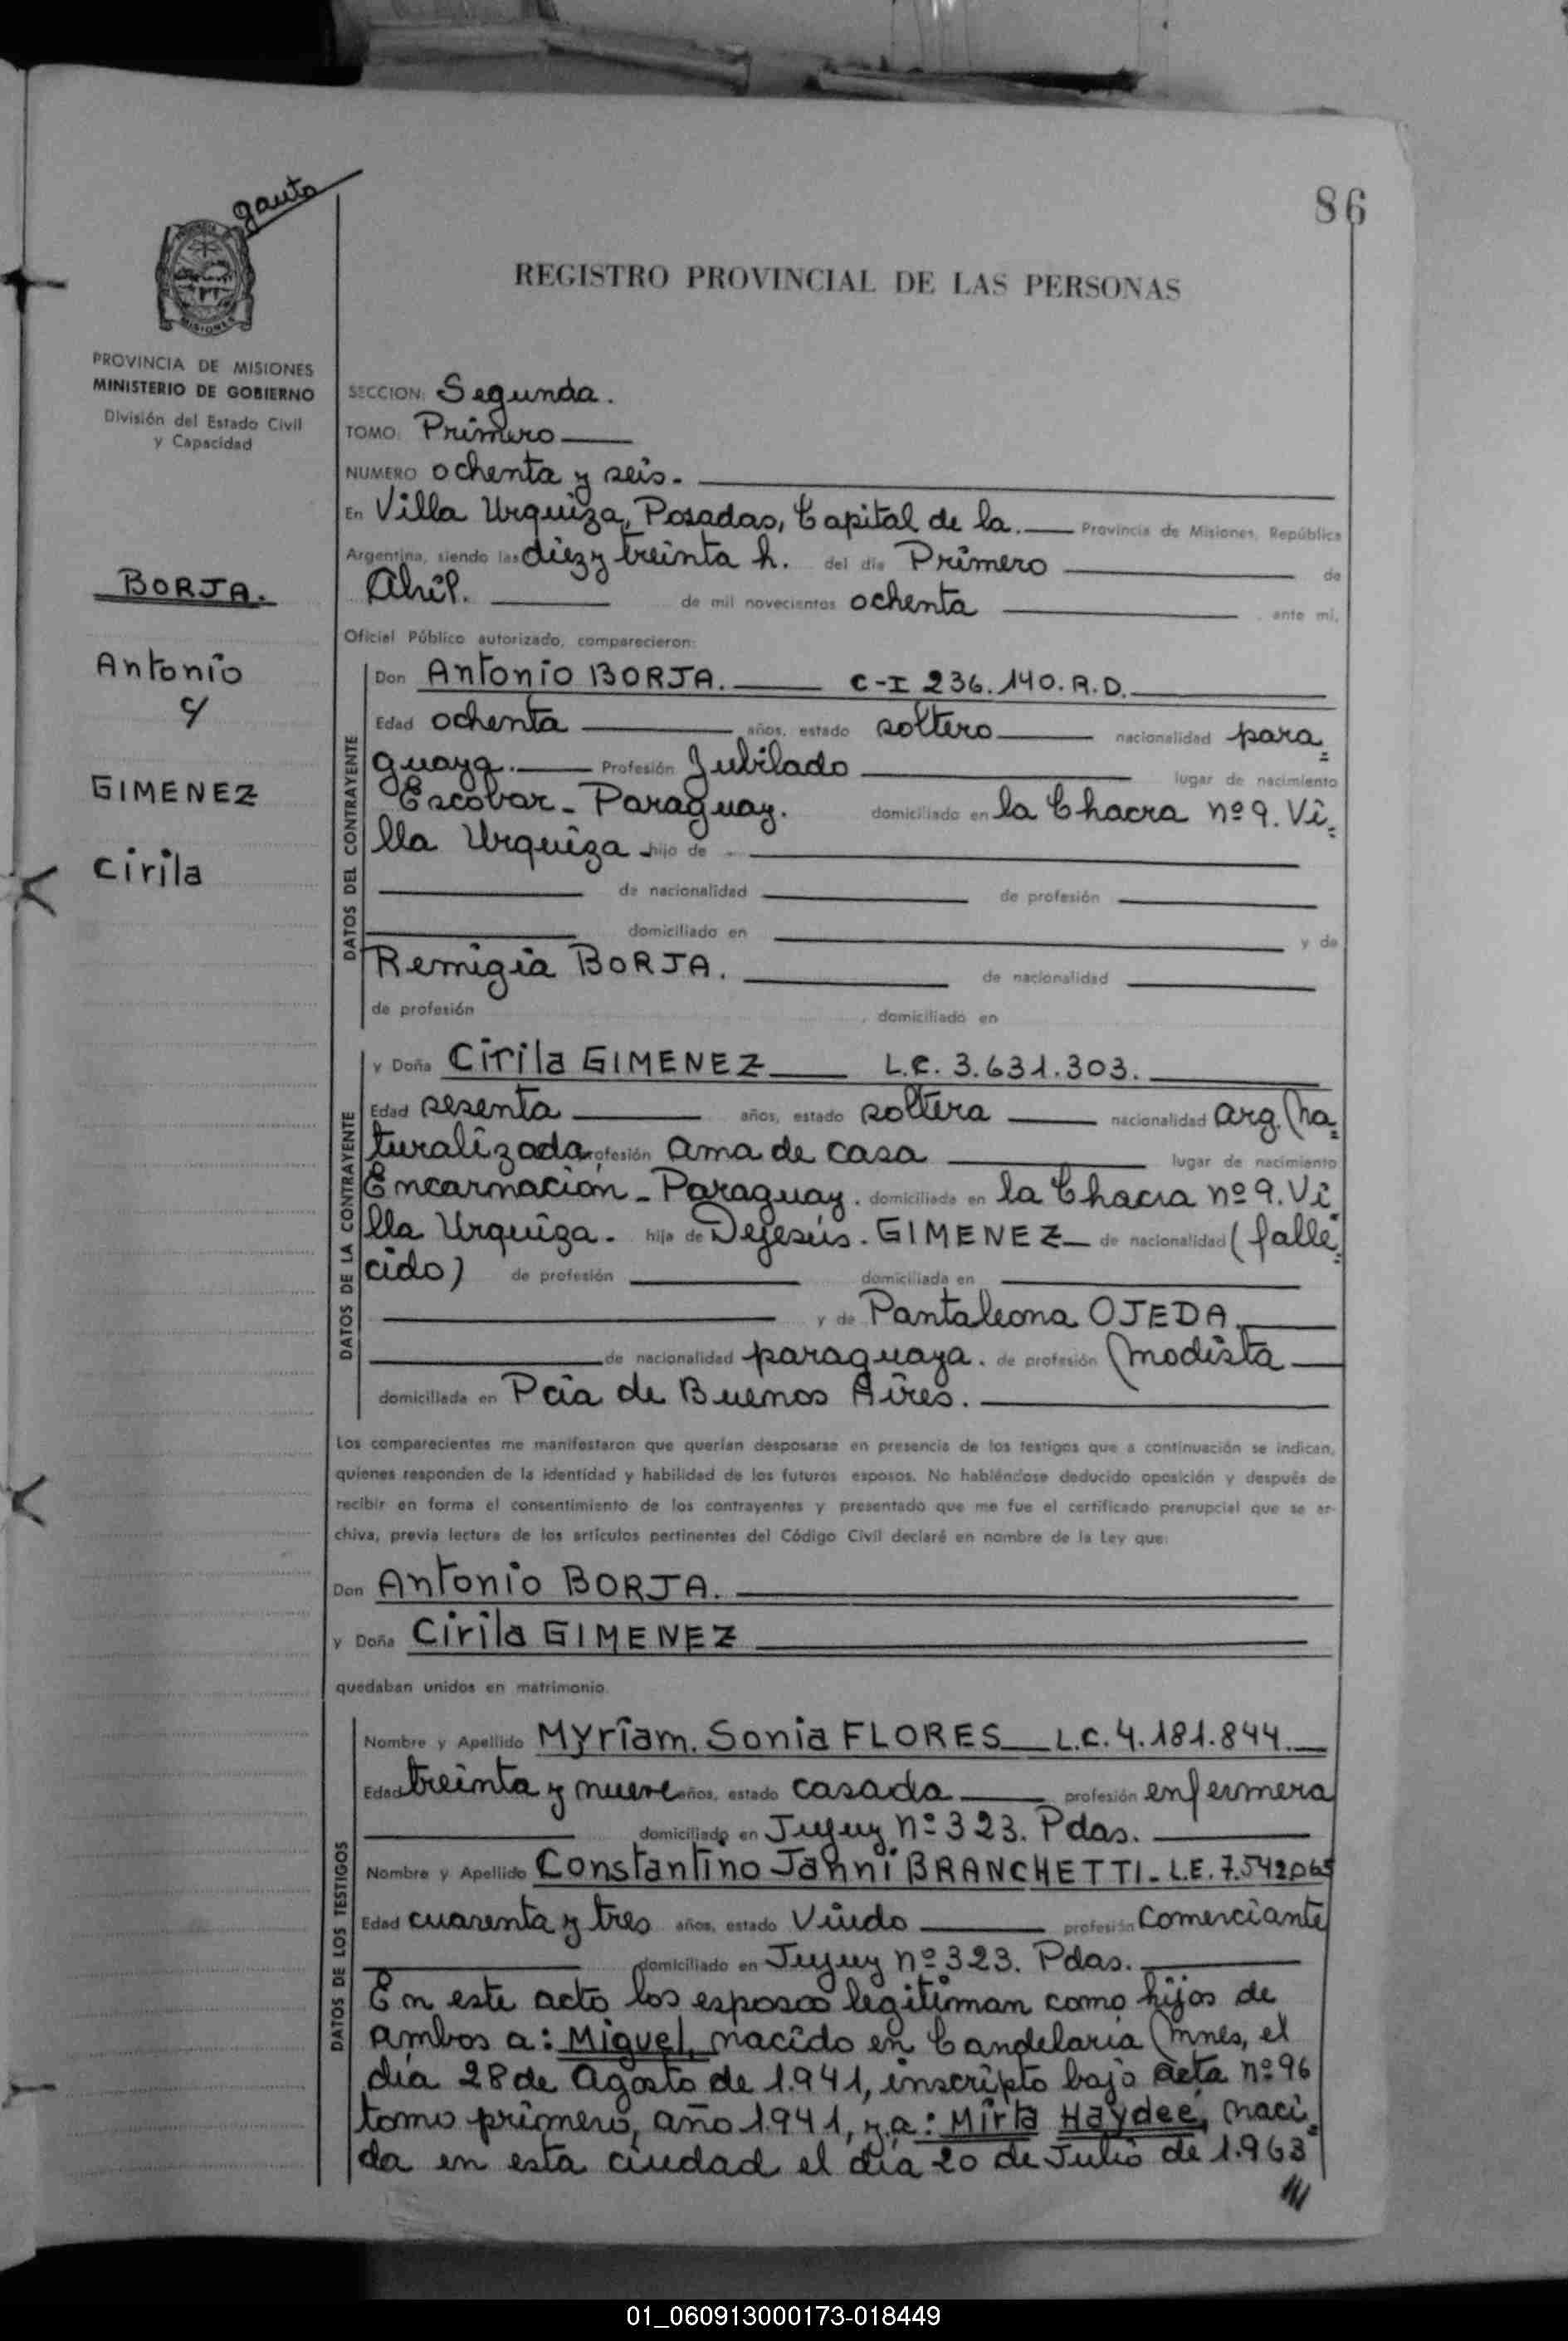 gauto
86
MISIONES
REGISTRO PROVINCIAL DE LAS PERSONAS
PROVINCIA DE MISIONES
MINISTERIO DE GOBIERNO
División del Estado Civil
y Capacidad
BORJA.
Antonio
c/
GIMENEZ
Cirila
SECCION: Segunda.
TOMO: Primero
NUMERO ochenta y seis.
En Villa Urquiza, Posadas, Capital de la. Provincia de Misiones, República
Argentina, siendo las diez y treinta h. del día Primero de
Abril. de mil novecientos ochenta, ante mi,
Oficial Público autorizado, comparecieron:
DATOS DEL CONTRAYENTE
Don Antonio BORJA. C-I 236.140.R.D.
Edad ochenta años, estado soltero nacionalidad para=
guaya. Profesión Jubilado lugar de nacimiento
Escobar - Paraguay. domiciliado en la Chacra nº 9. Vi=
lla Urquiza hijo de
de nacionalidad de profesión
domiciliado en y de
Remigia BORJA. de nacionalidad
de profesión , domiciliado en
DATOS DE LA CONTRAYENTE
y Doña Cirila GIMENEZ L.C. 3.631.303.
Edad sesenta años, estado soltera nacionalidad arg. (na=
turalizada profesión ama de casa lugar de nacimiento
Encarnación - Paraguay. domiciliada en la Chacra nº 9. Vi
lla Urquiza. hija de Dejesús. GIMENEZ de nacionalidad (falle=
cido) de profesión domiciliada en
y de Pantaleona OJEDA.
de nacionalidad paraguaya. de profesión Modista
domiciliada en Pcia de Buenos Aires.
Los comparecientes me manifestaron que querían desposarse en presencia de los testigos que a continuación se indican,
quienes responden de la identidad y habilidad de los futuros esposos. No habiéndose deducido oposición y después de
recibir en forma el consentimiento de los contrayentes y presentado que me fue el certificado prenupcial que se ar-
chiva, previa lectura de los artículos pertinentes del Código Civil declaré en nombre de la Ley que:
Don Antonio BORJA.
y Doña Cirila GIMENEZ
quedaban unidos en matrimonio.
DATOS DE LOS TESTIGOS
Nombre y Apellido Myriam. Sonia FLORES L.C. 4.181.844.
Edad treinta y nueve años, estado casada profesión enfermera
domiciliado en Jujuy nº 323. Pdas.
Nombre y Apellido Constantino Janni BRANCHETTI - L.E. 7.542065
Edad cuarenta y tres años, estado Viudo profesión Comerciante
domiciliado en Jujuy nº 323. Pdas.
En este acto los esposos legitiman como hijos de
ambos a: Miguel, nacido en Candelaria Mnes, el
día 28 de Agosto de 1.941, inscripto bajo acta nº 96
tomo primero, año 1941, y a: Mirta Haydeé, naci=
da en esta ciudad el día 20 de Julio de 1.963
01_060913000173-018449